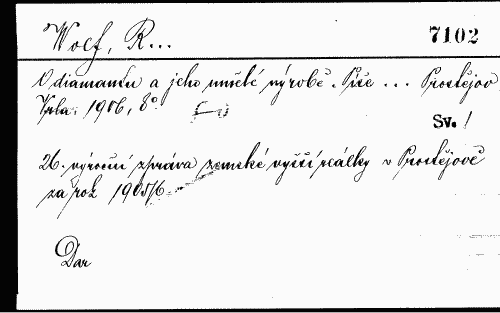 Wolf, R...
7102
O diamantu a jeho umělé výrobě. Píše ... Prostějov
1906, 8°.
Sv. 1
26. výroční zpráva zemské vyšší reálky v Prostějově
za rok 1905/6.
Dar